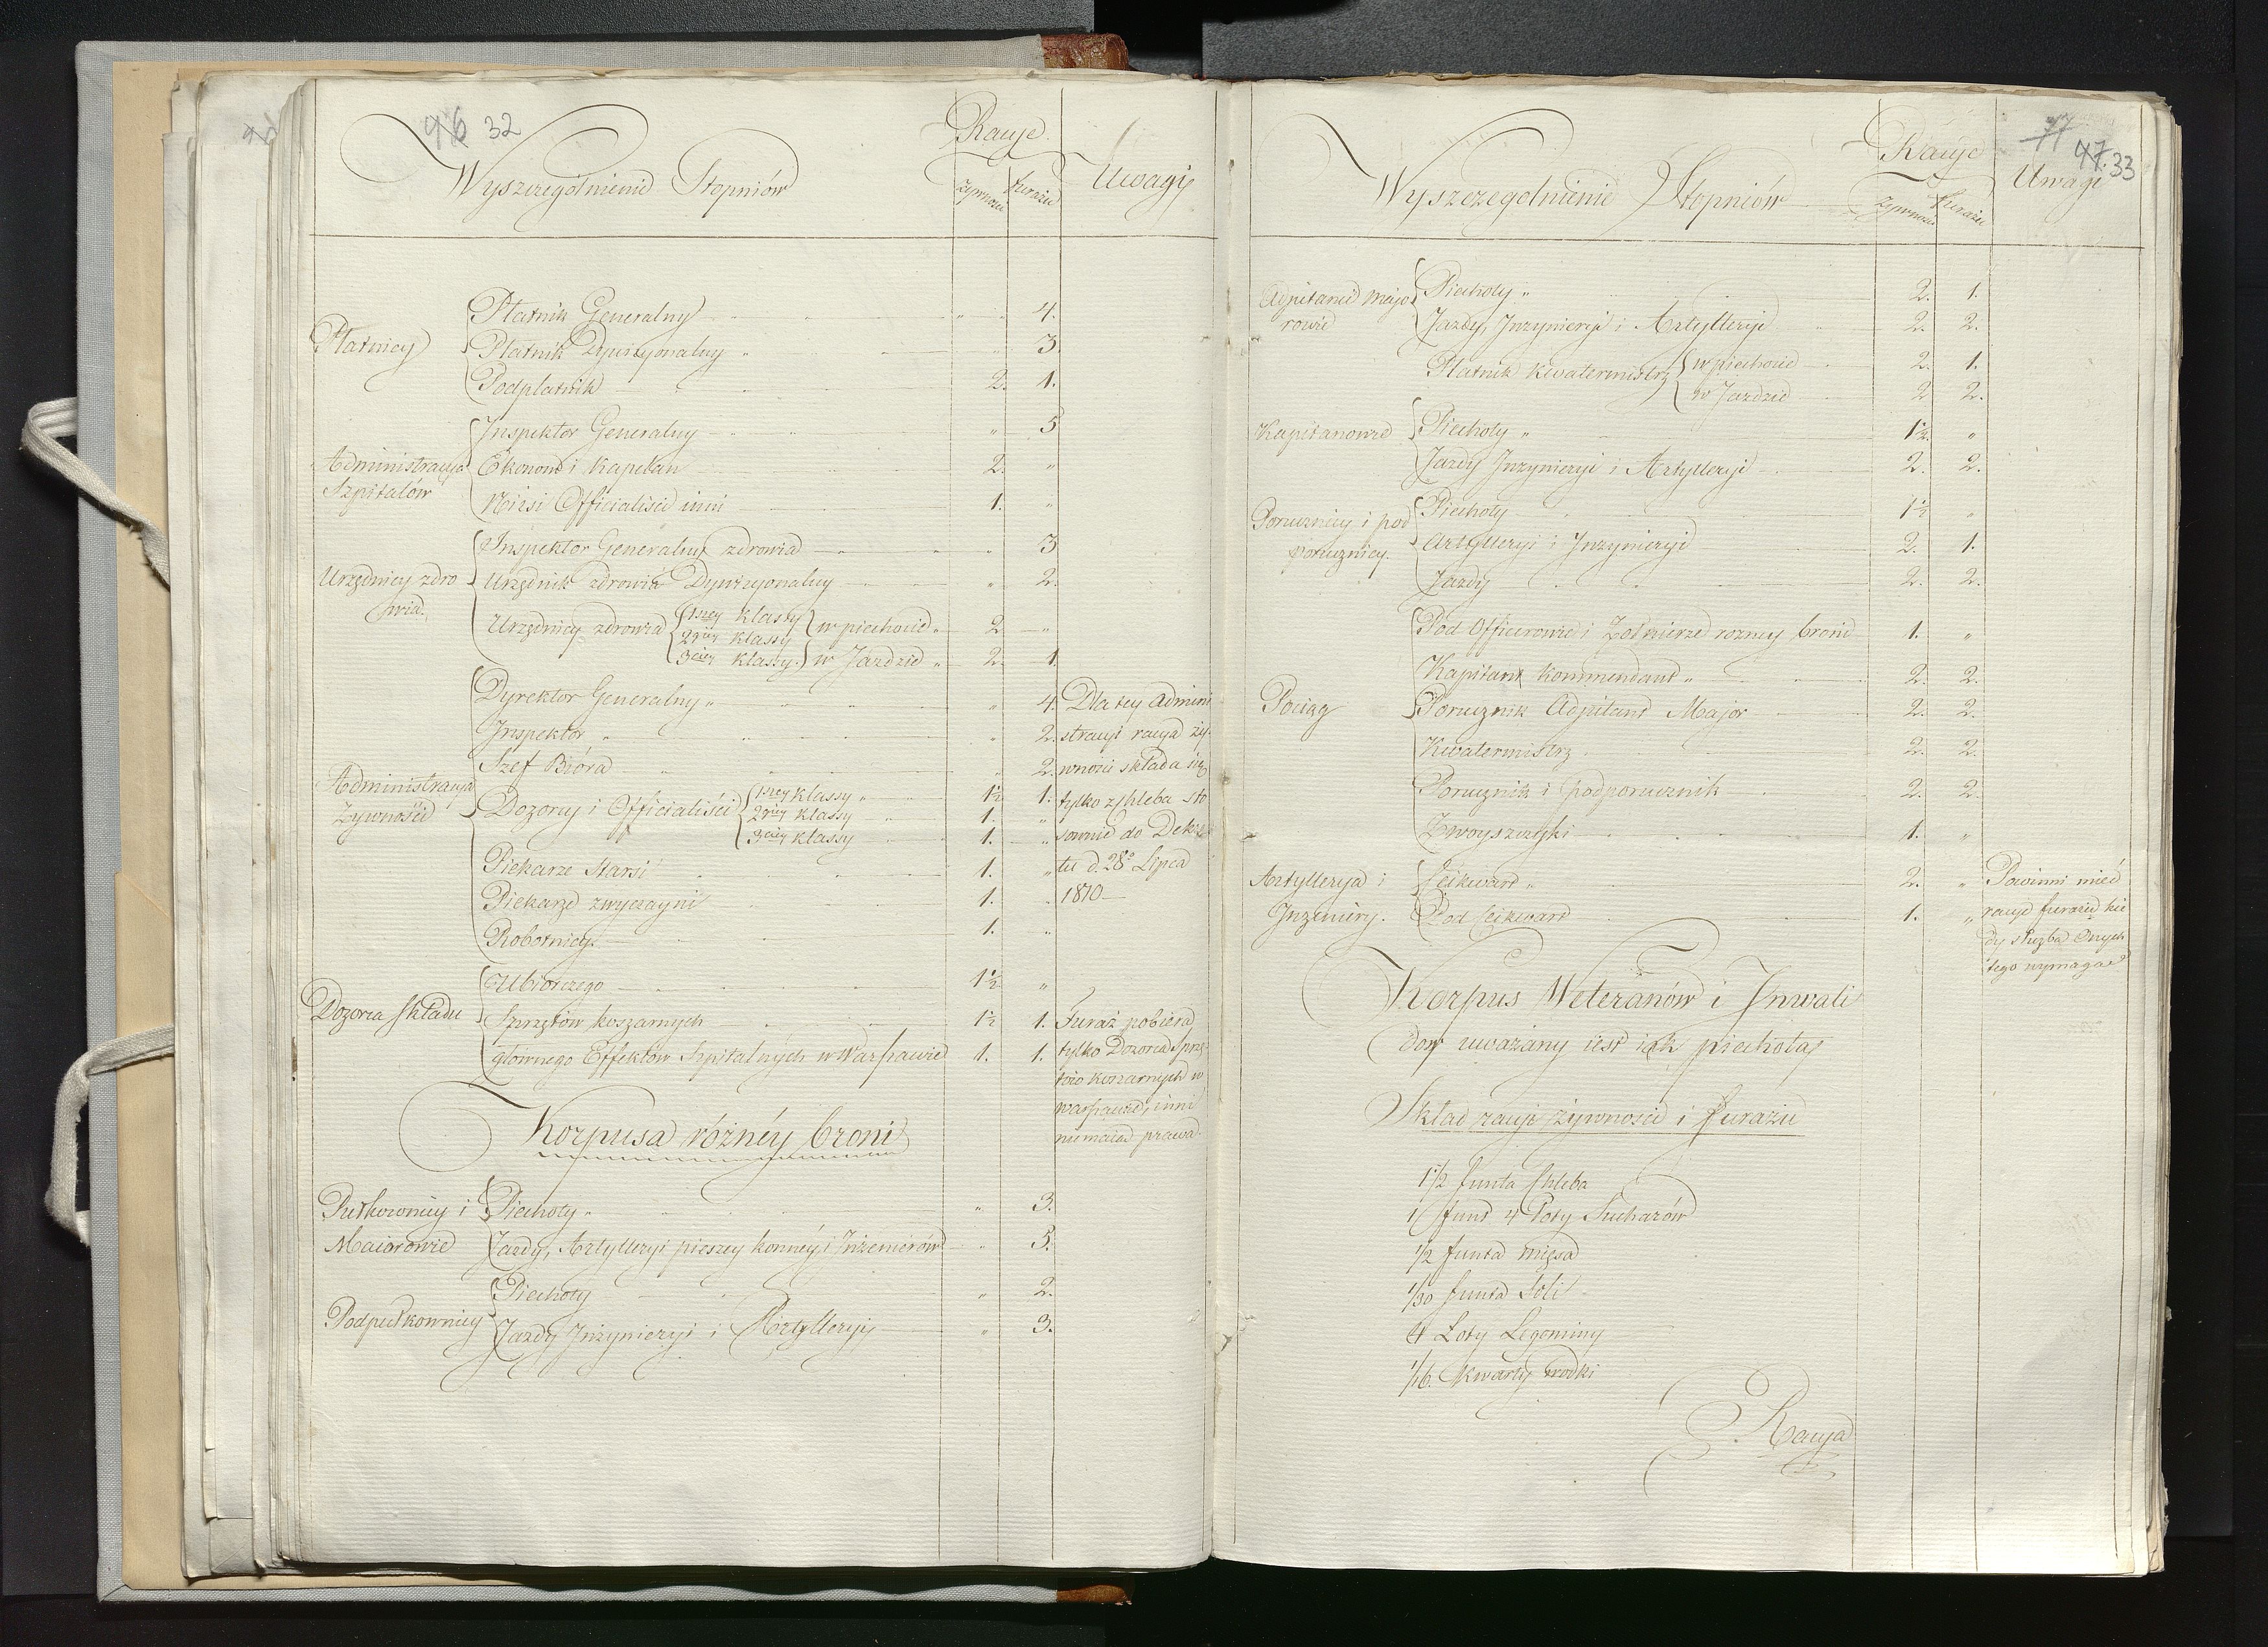 46 32
Wyszczegolnienie Stopniów Racye Uwagi
żywności furażu
Płatnicy
Płatnik Generalny „ 4.
Płatnik Dywizyonalny „ „ 3.
Podpłatnik 2. 1.
Administracya Szpitalów
Inspektor Generalny „ 5
Ekonom i Kapelan 2. „
Niżsi Officialiści inni 1. „
Urzędnicy zdrowia.
Inspektor Generalny zdrowia „ 3
Urzędnik zdrowia Dywizyonalny „ 2.
Urzędnicy zdrowia
1szey klassy
2giey klassy
3ciey klassy.
w piechocie „ 2 „
w Jazdzie „ 2. 1.
Administracya Żywności
Dyrektor Generalny „ „ 4.
Inspektor „ „ 2.
Szef Bióra „ 2.
Dozorcy i Officialiści
1szey klassy „ 1½ 1.
2giey klassy 1. „
3ciey klassy 1. „
Piekarze Starsi 1. „
Piekarze zwyczayni 1. „
Robotnicy. 1. „
Dla tey Admini
stracyi racya ży-
wności składa się
tylko z chleba sto
sownie do Dekre
tu d. 28o Lipca
1810 —
Dozorca Składu
Ubiorczego 1½ „
Sprzętów koszarnych 1½ 1.
głównego Effektów Szpitalnych w Warszawie 1. 1.
Furaż pobiera
tylko Dozorca Sprzę
tów koszarnych w
Warszawie, inni
nie maią prawa.
Korpusa różnéy broni
Pułkownicy i Maiorowie
Piechoty „ „ 3.
Jazdy, Artylleryi pieszey konnéy i Inżenierów „ 5.
Podpułkownicy
Piechoty „ 2.
Jazdy Inżynieryi i Artylleryi „ 3.
77 47. 33
Wyszczegolnienie Stopniów Racye Uwagi
żywności furażu
Adjutanci Majo
rowie
Piechoty „ 2. 1.
Jazdy, Inzynieryi i Artylleryi 2. 2.
Płatnik Kwatermistrz
w piechocie 2. 1.
w Jazdzie 2 2.
Kapitanowie
Piechoty „ 1½. „
Jazdy Inzynieryi i Artylleryi 2. 2.
Porucznicy i pod
porucznicy.
Piechoty 1½ „
Artylleryi i Inzynieryi 2. 1.
Jazdy 2. 2.
Pod Officerowie i Żołnierze rozney broni 1. „
Pociąg
Kapitan Kommendant „ 2. 2.
Porucznik Adjutant Major 2. 2.
Kwatermistrz 2. 2.
Porucznik i podporucznik 2. 2.
1. „
Artyllerya i
Inzeniéry.
Cejkwart „ 2. „
Pod Cejkwart 1. „
Powinni mieć
racye furażu kie
dy służba Onych
tego wymaga
Korpus Weteranów i Inwali
dow uważany iest iak piechota
Skład racyi żywności i furażu
1½ funta Chleba
1 funt 4 Łoty Sucharów
1/2 funta mięsa
1/30 funta Soli
4 Loty Legominy
1/16. kwarty wodki
Racya